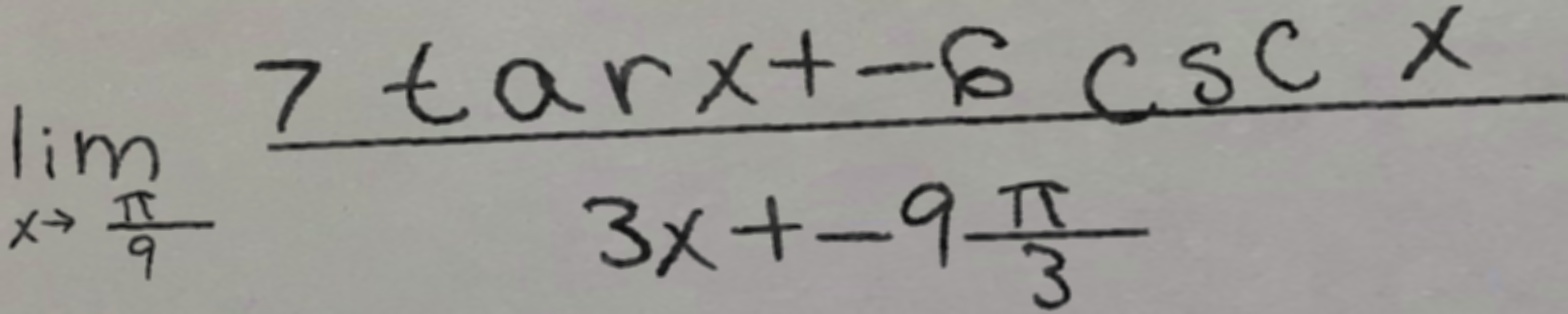 \lim_{x \to \frac{\pi}{9}} \frac{7 \tan x + -6 \csc x}{3x + -9 \frac{\pi}{3}}